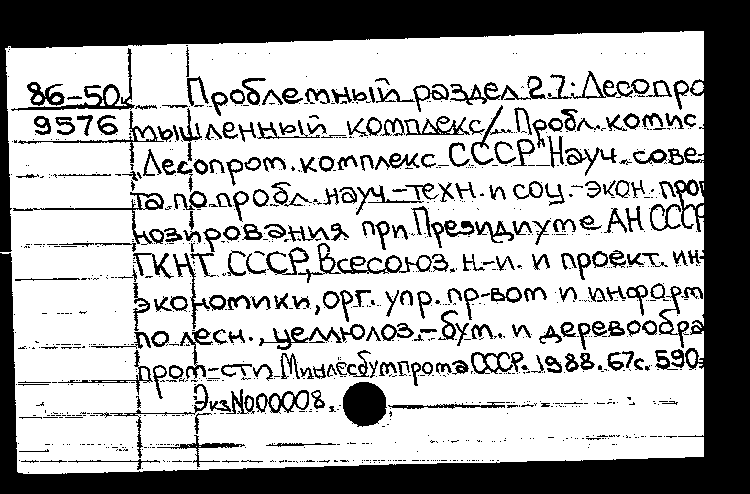 86-50к Проблемный раздел 2.7: Лесопро
9576 мышленный комплекс/ Пробл. комис.
„Лесопром. комплекс СССР" Науч. сове-
та по пробл. науч.-техн. и соц.-экон. прог
нозирования при Президиуме АН СССР
ГКНТ СССР, Всесоюз. н.-и. и проект. ин-
экономики, орг. упр. пр-вом и информ
по лесн., целлюлоз.-бум. и деревообра
пром-сти Минлесбумпрома СССР. 1988. 67с. 590
Экз№00008.